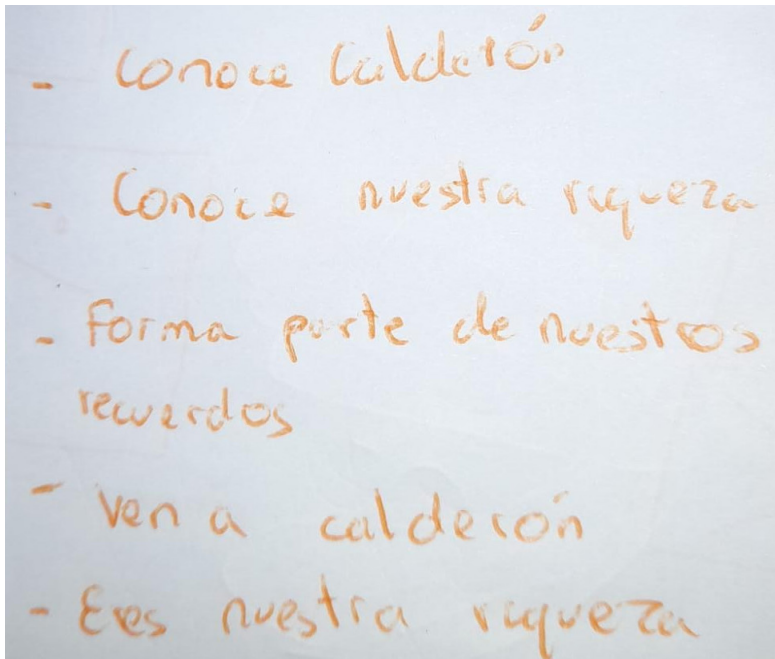 - Conoce Calderón
- Conoce nuestra riqueza
- Forma parte de nuestros
recuerdos
- Ven a calderón
- Eres nuestra riqueza